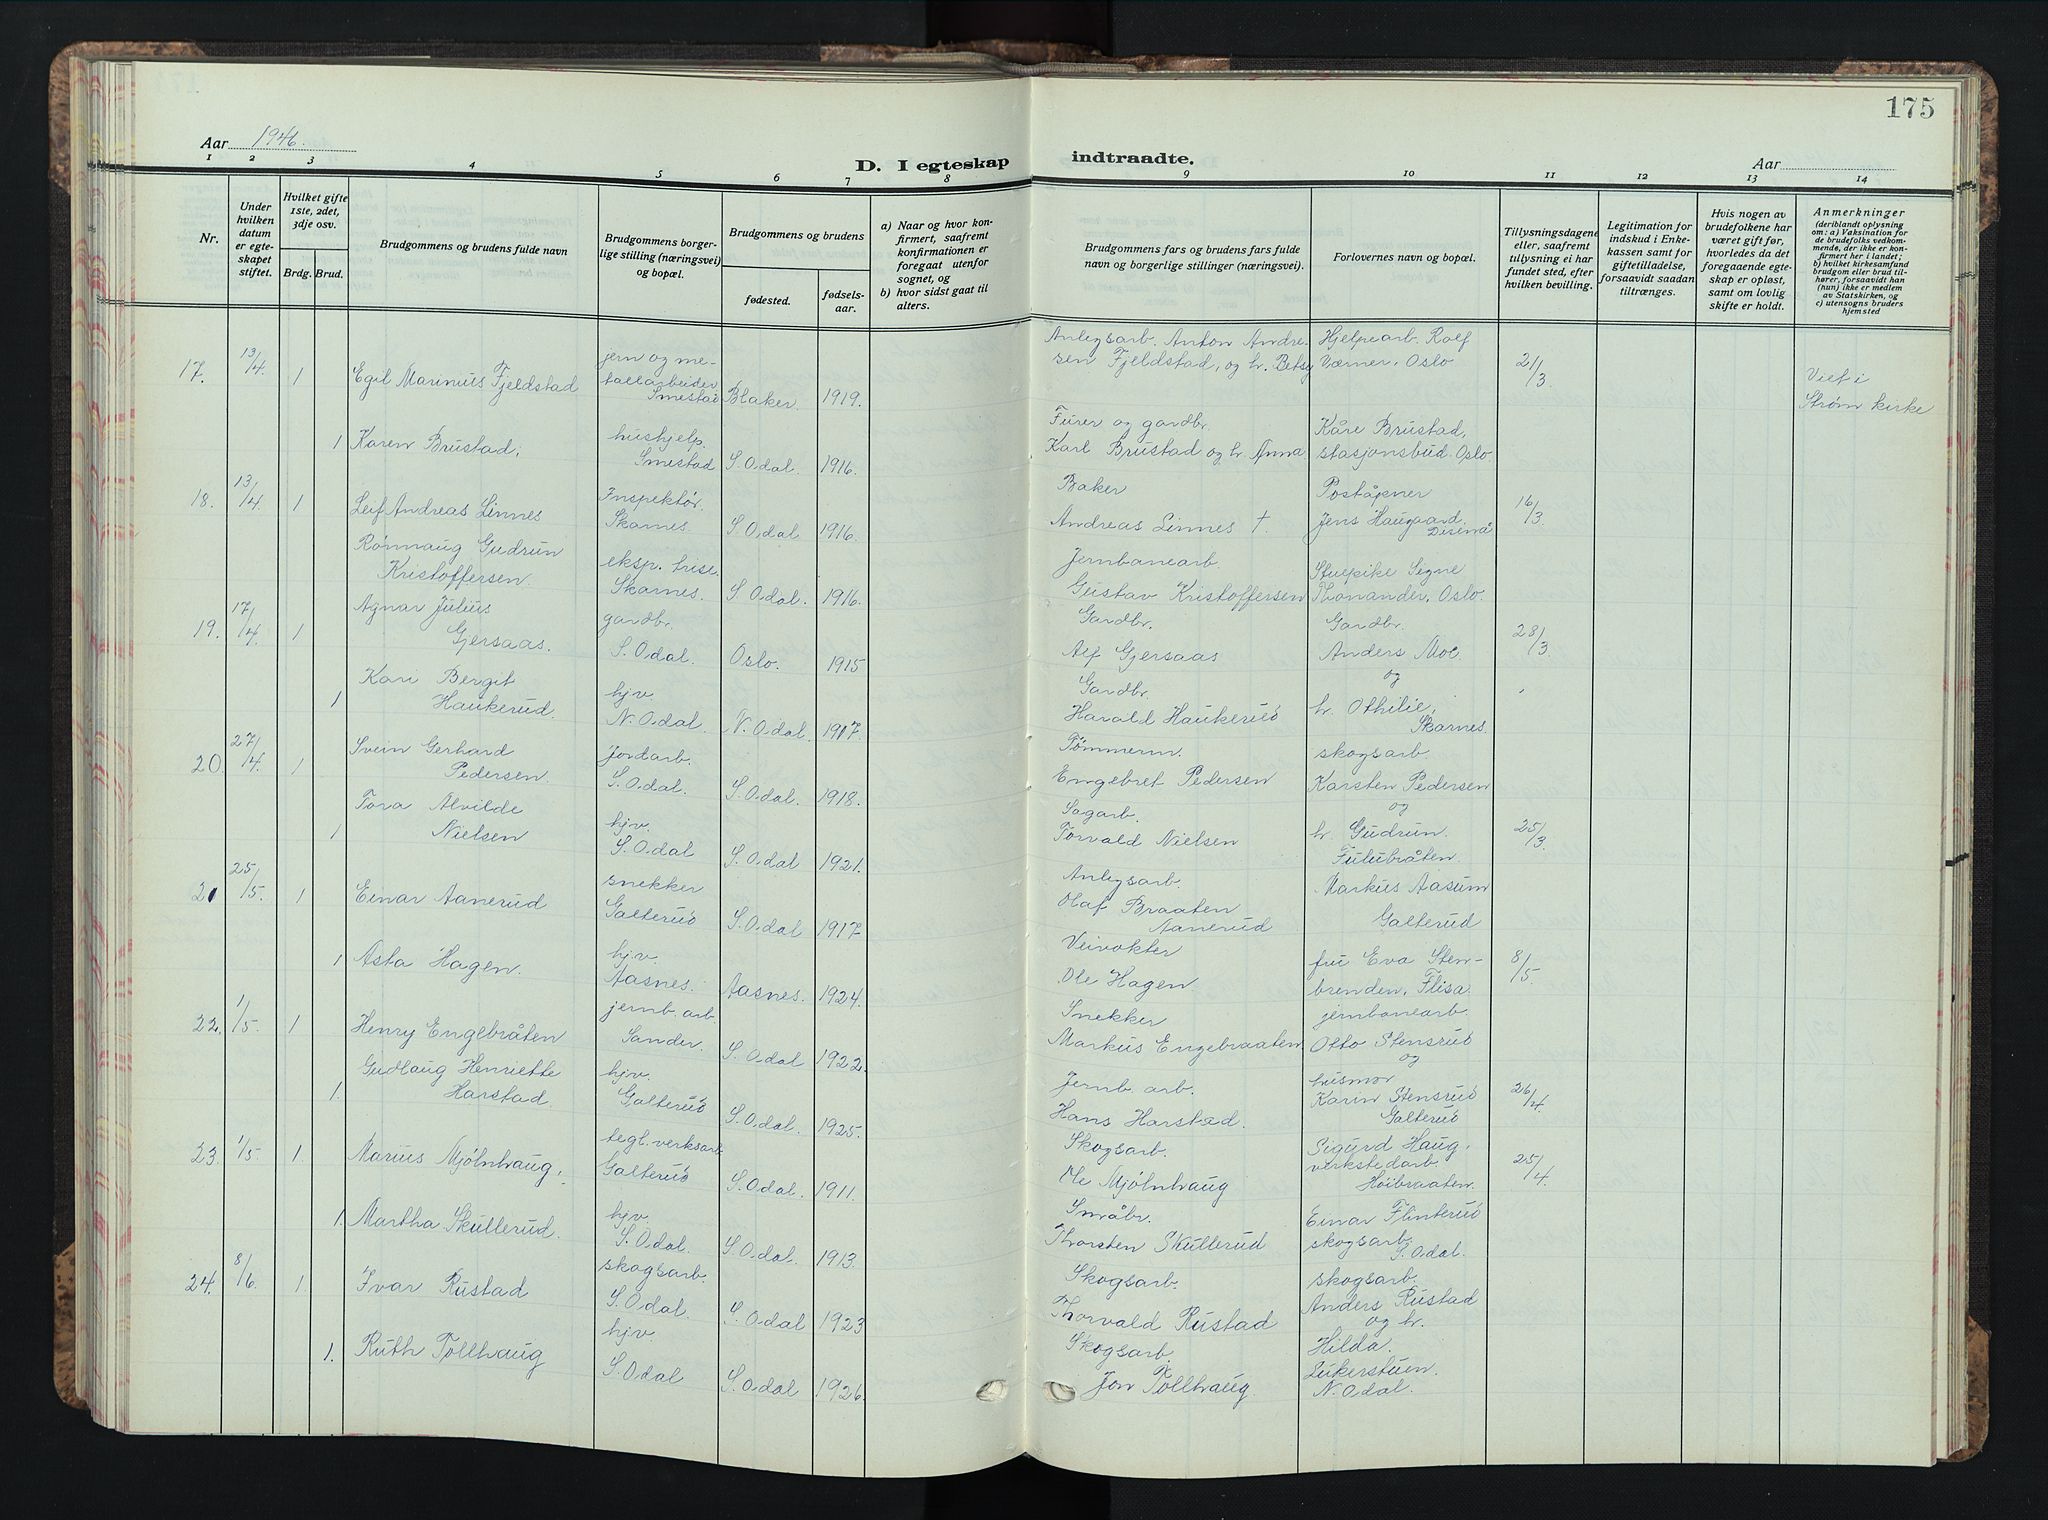 175
Aar 1946.
D. I egteskap indtraadte.
Aar
1 2 3 4 5 6 7 8 9 10 11 12 13 14
Nr.
Under hvilken datum er egteskapet stiftet.
Hvilket gifte 1ste, 2det, 3dje osv.
Brdg. Brud.
Brudgommens og brudens fulde navn
Brudgommens borgerlige stilling (næringsvei) og bopæl.
Brudgommens og brudens
fødested.
fødselsaar.
a) Naar og hvor konfirmert, saafremt konfirmationen er foregaat utenfor sognet, og
b) hvor sidst gaat til alters.
Brudgommens fars og brudens fars fulde navn og borgerlige stillinger (næringsvei).
Forlovernes navn og bopæl.
Tillysningsdagene eller, saafremt tillysning ei har fundet sted, efter hvilken bevilling.
Legitimation for indskud i Enkekassen samt for giftetilladelse, forsaavidt saadan tiltrænges.
Hvis nogen av brudefolkene har været gift før, hvorledes da det foregaaende egteskap er opløst, samt om lovlig skifte er holdt.
Anmerkninger (deriblandt oplysning om: a) Vaksination for de brudefolks vedkommende, der ikke er konfirmert her i landet; b) hvilket kirkesamfund brudgom eller brud tilhører, forsaavidt han (hun) ikke er medlem av Statskirken, og c) utensogns bruders hjemsted
17. 13/4. 1 Egil Marinus Fjeldstad jern og metallarbeider Smestad Blaker. 1919. Anlegsarb. Anton Andresen Fjeldstad, og h. Betsy Hjelpearb. Rolf Værner, Oslo 21/3 Viet i Strøm kirke
1 Karen Brustad, hushjelp. Smestad S. Odal. 1916. Furer og gardbr. Karl Brustad og h. Anna Kåre Brustad, stasjonsbud. Oslo.
18. 13/4 1 Leif Andreas Linnes Inspektør. Skarnes. S. Odal 1916. Baker Andreas Linnes † Poståpner Jens Haugaard. Disenå 16/3.
Rønnaug Gudrun Kristoffersen. eksp. trise. Skarnes. S. Odal. 1916. Jernbanearb. Gustav Kristoffersen Stuepike Signe Thonander, Oslo.
19. 17/4 1 Agnar Julius Gjersaas. gardbr. S. Odal. Oslo. 1915 Gardbr. Alf Gjersaas Gardbr. Anders Moe. og 28/3.
1 Kari Bergit Haukerud. hjv. N. Odal. N. Odal. 1917. Gardbr. Harald Haukerud h. Othilie, Skarnes.
20. 27/4. 1 Svein Gerhard Pedersen. Jordarb. S. Odal. S. Odal. 1918. Tømmerm. Engebret Pedersen skogsarb. Karsten Pedersen og
1 Tora Alvilde Nielsen hjv. S. Odal S. Odal 1921. Sagarb. Torvald Nielsen h. Gudrun. Fulubråten. 25/3
21 25/5. 1 Einar Aanerud snekker Galterud S. Odal 1917 Anlegsarb. Olaf Braaten Aanerud Markus Aasum Galterud
1 Asta Hagen. hjv. Aasnes. Aasnes. 1924. Veivokter Ole Hagen. fru Eva Stenbrenden, Flisa. 8/5
22. 1/5. 1 Henry Engebråten jernb. arb. Sander. S. Odal 1922. Snekker Markus Engebraaten jernbanearb. Otto Stensrud og
1. Gudlaug Henriette Harstad. hjv. Galterud S. Odal. 1925. Jernb. arb. Hans Harstad. husmor Karin Stensrud Galterud 26/4
23. 1/5. 1. Marius Mjølnhaug. tegl.verksarb. Galterud S. Odal. 1911. Skogsarb. Ole Mjølnhaug Sigurd Haug, verkstedarb. Høibraaten. 25/4.
1. Martha Skullerud. hjv. S. Odal. S. Odal. 1913. Småbr. Thorsten Skullerud Einar Flinterud skogsarb. S. Odal.
24. 8/6 1. Ivar Rustad skogsarb. S. Odal. S. Odal 1923 Skogsarb. Thorvald Rustad skogsarb. Anders Rustad og h.
1. Ruth Tollhaug hjv. S. Odal S. Odal 1926. Skogsarb. Jon Tollhaug. Hilda. N. Odal.